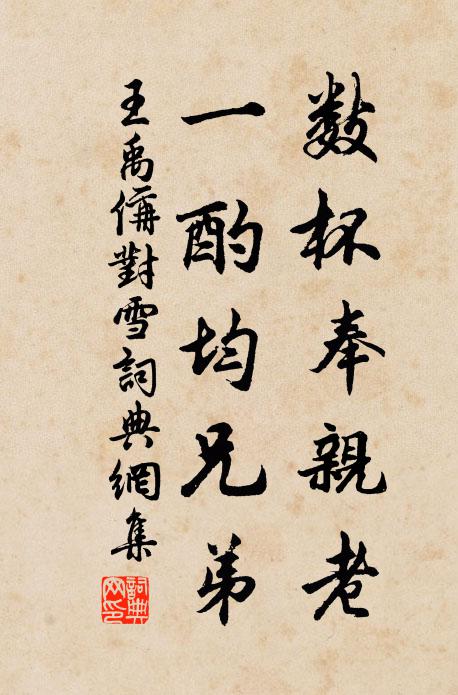 數杯奉親老
一酌均兄弟
王禹偁對雪詞典網集
詞典網印